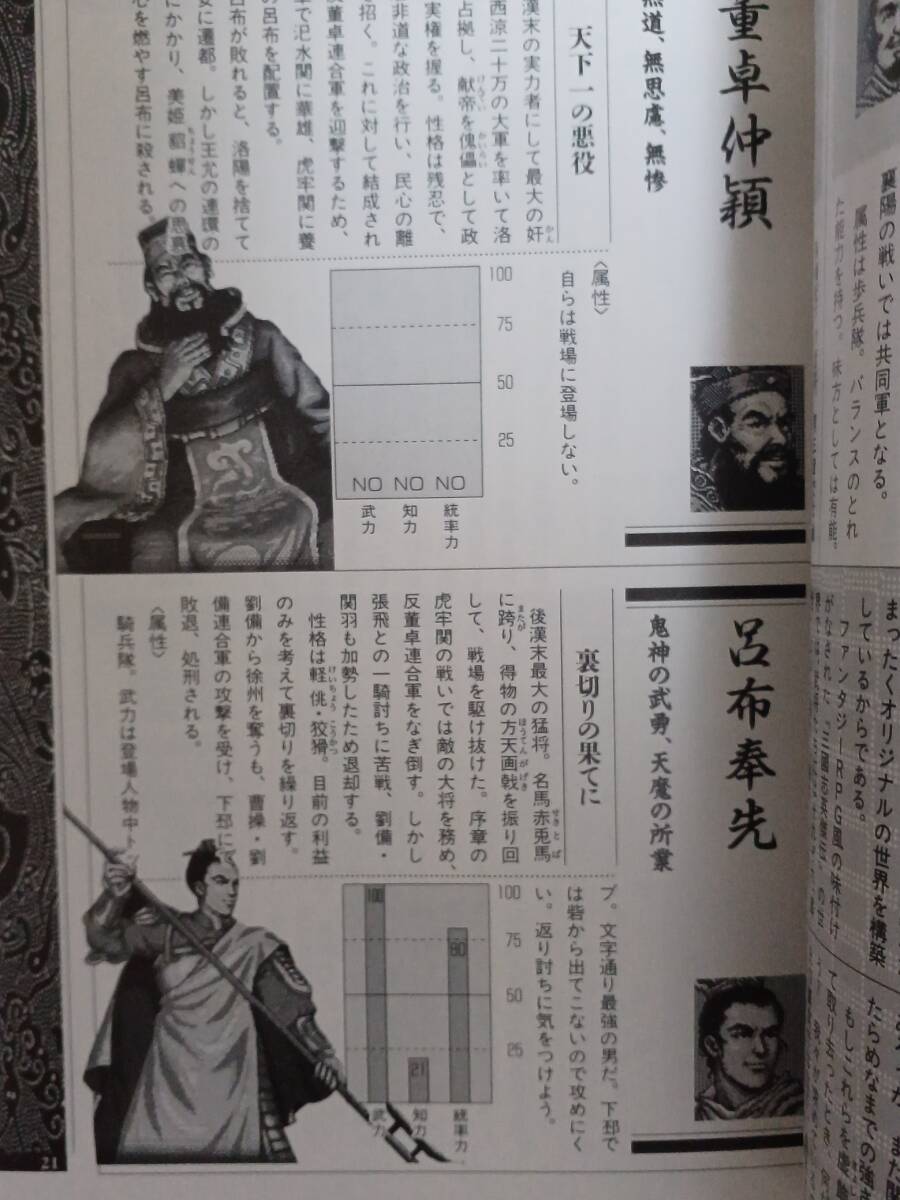 董卓仲穎
無道、無思慮、無惨
天下一の悪役
漢末の実力者にして最大の奸
西涼二十万の大軍を率いて洛
占拠し、献帝を傀儡として政
実権を握る。性格は残忍で、
非道な政治を行い、民心の離
を招く。これに対して結成され
董卓連合軍を迎撃するため、
軍で汜水関に華雄、虎牢関に養
の呂布を配置する。
呂布が敗れると、洛陽を捨てて
安に遷都。しかし王允の連環の
にかかり、美姫貂蟬への思慕
心を燃やす呂布に殺される。
〈属性〉
自らは戦場に登場しない。
100
75
50
25
NO NO NO
武力
知力
統率力
呂布奉先
鬼神の武勇、天魔の所業
裏切りの果てに
後漢末最大の猛将。名馬赤兎馬
に跨り、得物の方天画戟を振り回
して、戦場を駆け抜けた。序章の
虎牢関の戦いでは敵の大将を務め、
反董卓連合軍をなぎ倒す。しかし
張飛との一騎討ちに苦戦、劉備・
関羽も加勢したため退却する。
性格は軽佻・狡猾。目前の利益
のみを考えて裏切りを繰り返す。
劉備から徐州を奪うも、曹操・劉
備連合軍の攻撃を受け、下邳にて
敗退、処刑される。
〈属性〉
騎兵隊。武力は登場人物中トッ
プ。文字通り最強の男だ。下邳で
は砦から出てこないので攻めにく
い。返り討ちに気をつけよう。
100
75
50
25
100
21
80
武力
知力
統率力
21
襄陽の戦いでは共同軍となる。
属性は歩兵隊。バランスのとれ
た能力を持つ。味方としては有能。
まったくオリジナルの世界を構築
しているからである。
ファンタジーRPG風の味付け
がなされた
たらめなまでの強さ
もしこれらを虚
て取り去ったとき、何